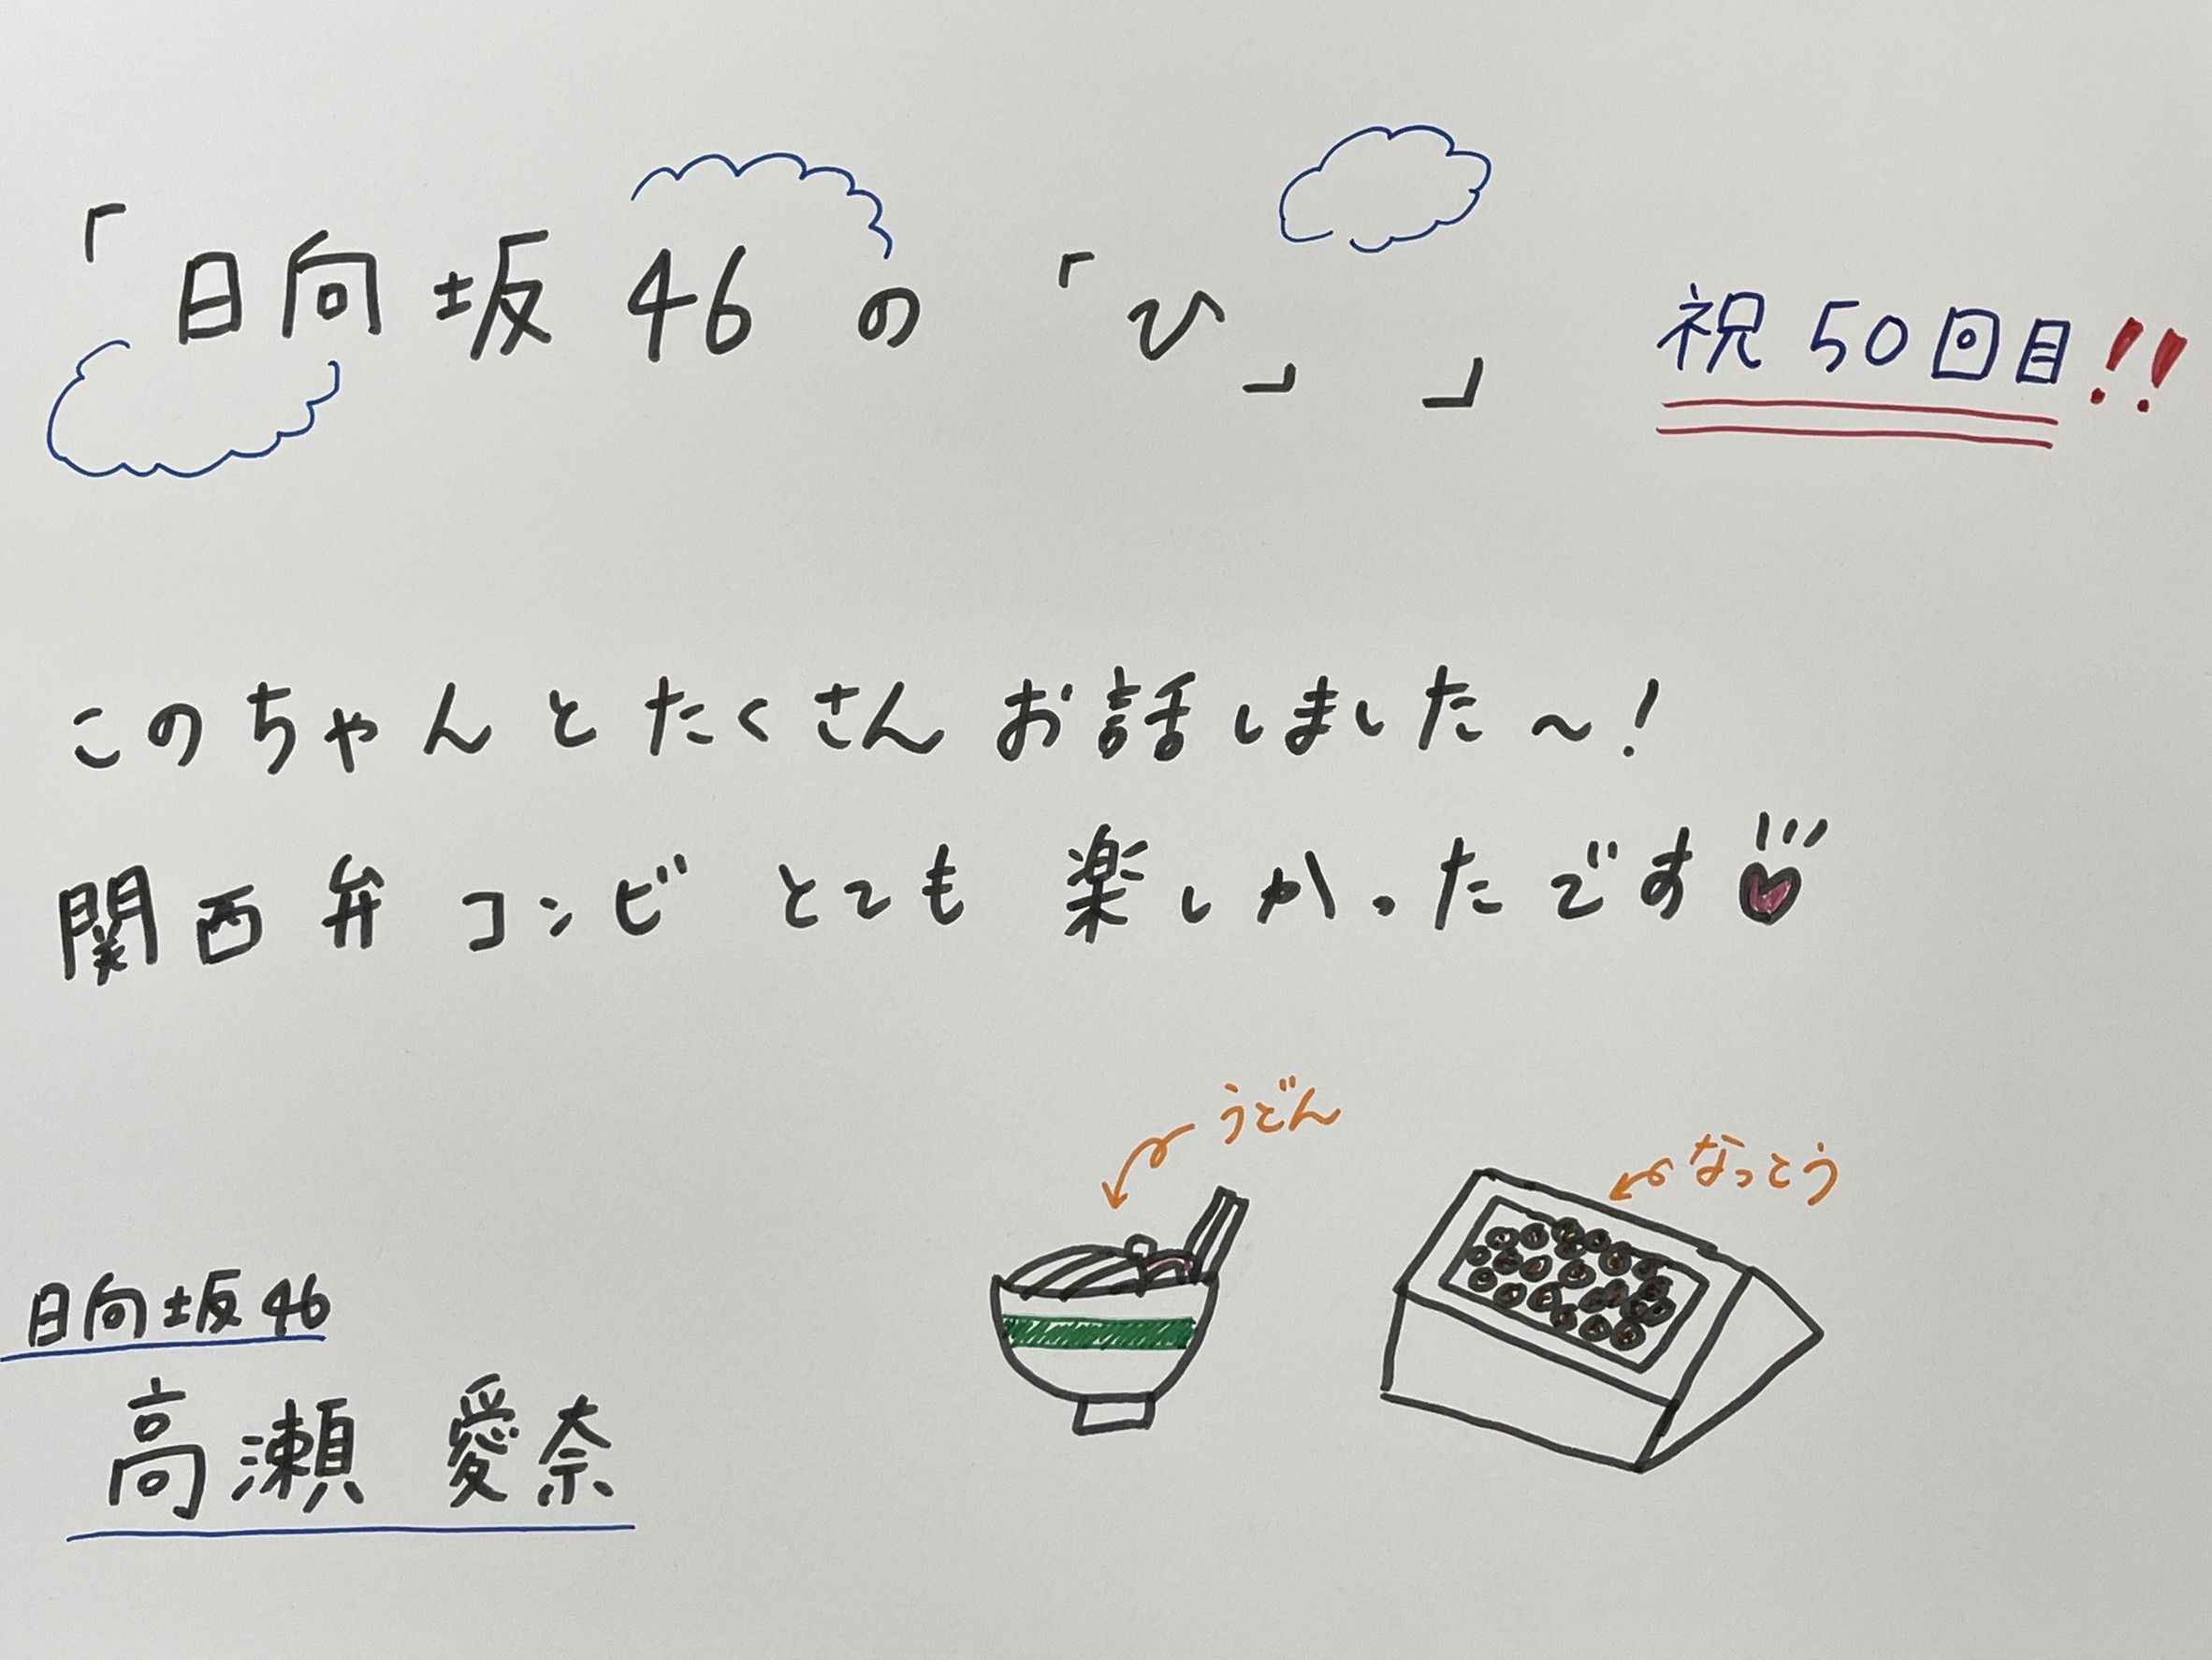 「日向坂46の「ひ」」 祝50回目!!
このちゃんとたくさんお話しました〜!
関西弁コンビとても楽しかったです
うどん
なっとう
日向坂46
高瀬 愛奈